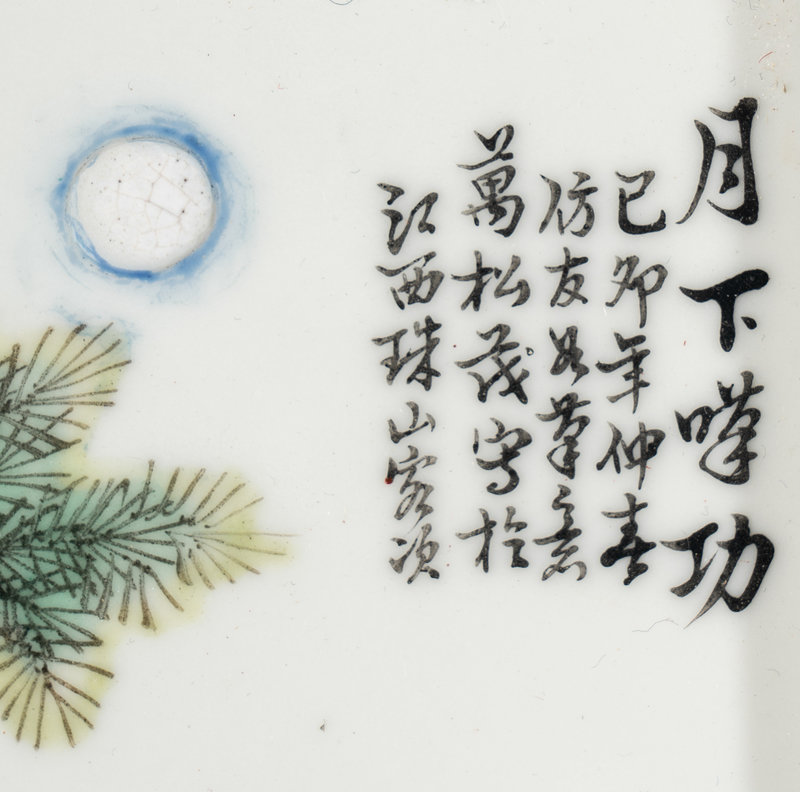 月下嘆功
己卯年仲春
仿友如筆意
萬松茂写於
江西珠山客次